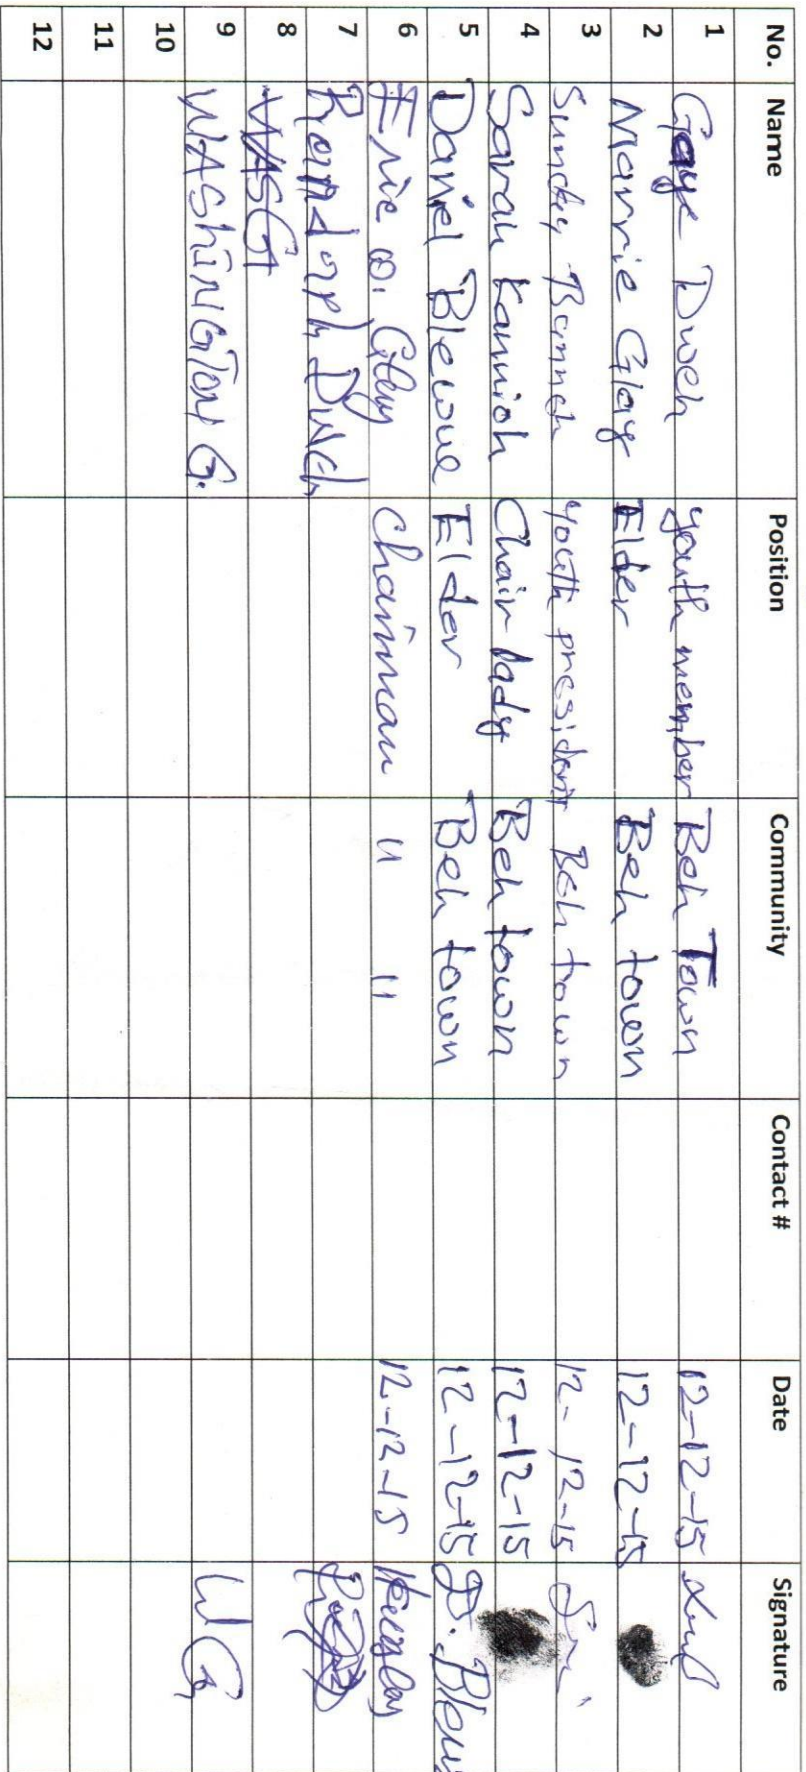 No. Name Position Community Contact # Date Signature
1 Gaye Dweh youth member Beh Town 12-12-15
2 Marrie Glay Elder Beh town 12-12-15
3 Sunday youth president Beh town 12-12-15
4 Sarah Kannioh Chair lady Beh town 12-12-15
5 Daniel Blewue Elder Beh town 12-12-15 D. Blew
6 Eric O. Glay chairman " " 12-12-15
7 Randolph Dweh
8 WASG
9 WAShiNGToN G. WG
10
11
12